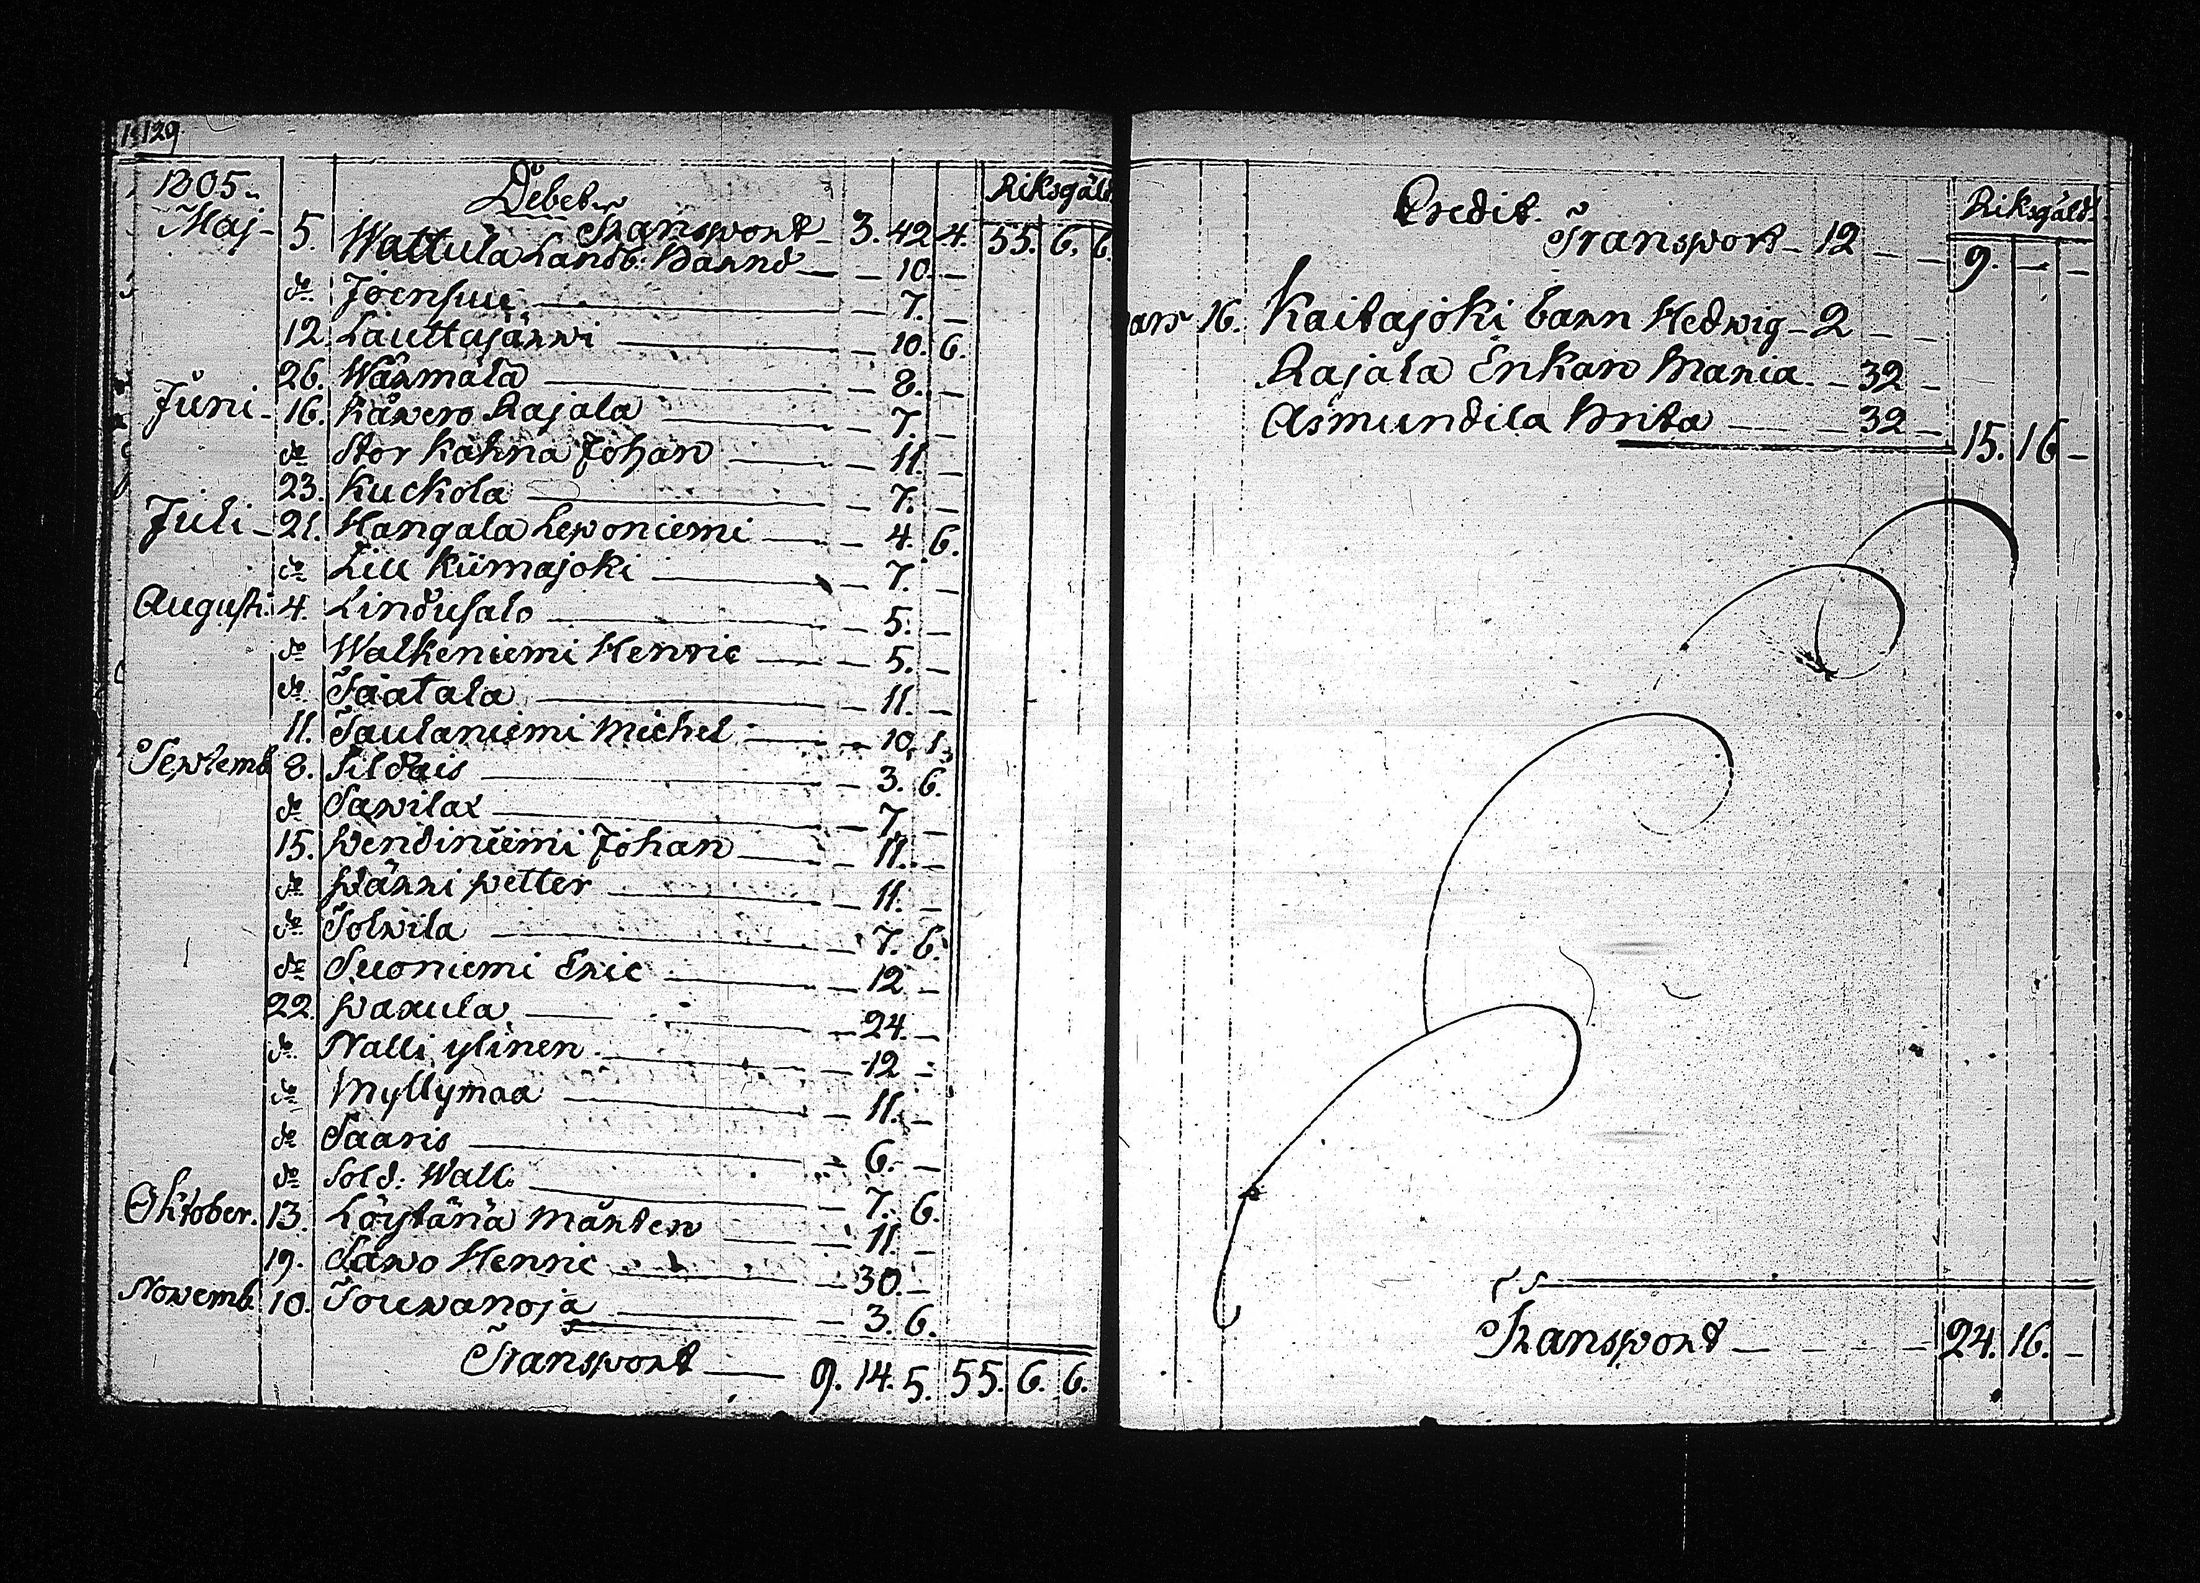 129.
1805. Debet. Riksgäld
Transport 3. 42 4. 55. 6. 6.
Maj 5. Wattula Landb: Barns 10.
do Joensuu 7.
12 Lauttajärwi 10. 6.
26. Wärmälä 8.
Juni 16. Käwero Rajala 7.
do Stor Kahna Johan 11.
23. Kuckola 7.
Juli 21. Hangala Leponiemi 4. 6.
do Lill Kiimajoki 7.
Augusti 4. Lindusalo 5.
do Walkeniemi Henric 5.
do Taatala 11.
11. Taulaniemi Michel 10. 1.
Septemb 8. Sildais 3. 6.
do Sawila 7
15. Pendiniemi Johan 11.
do Pärri Petter 11.
do Tolwila 7. 6.
do Suoniemi Eric 12
22. Parula 24.
do Nalli ylinen 12
do Myllymaa 11.
do Saaris 6.
do Sold: Wall 7. 6.
Oktober. 13. Löytänä Mårten 11.
19. Sawo Henric 30.
Novemb. 10. Touwanoja 3. 6.
Transport 9. 14. 5. 55. 6. 6.
Credit. Riksgäld
Transport 12 9.
16. Kaitajoki barn Hedwig 2
Rajala Enkan Maria 32
Asmundila Brita 32 15. 16
Transport 24. 16.